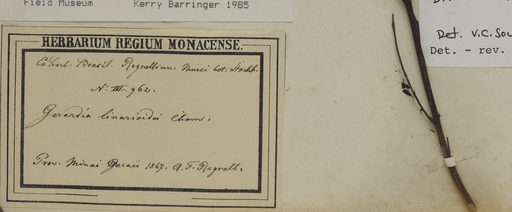 Field Museum Kerry Barringer 1985
Det. V.C. Sou
Det. - rev.
HERBARIUM REGIUM MONACENSE.
Ex herb. Brasil. Regnellian. Musei bot. Stockh.
N: III. 962.
Gerardia linarioides Cham.
Prov. Minas Geraës 1847. A. F. Regnell.